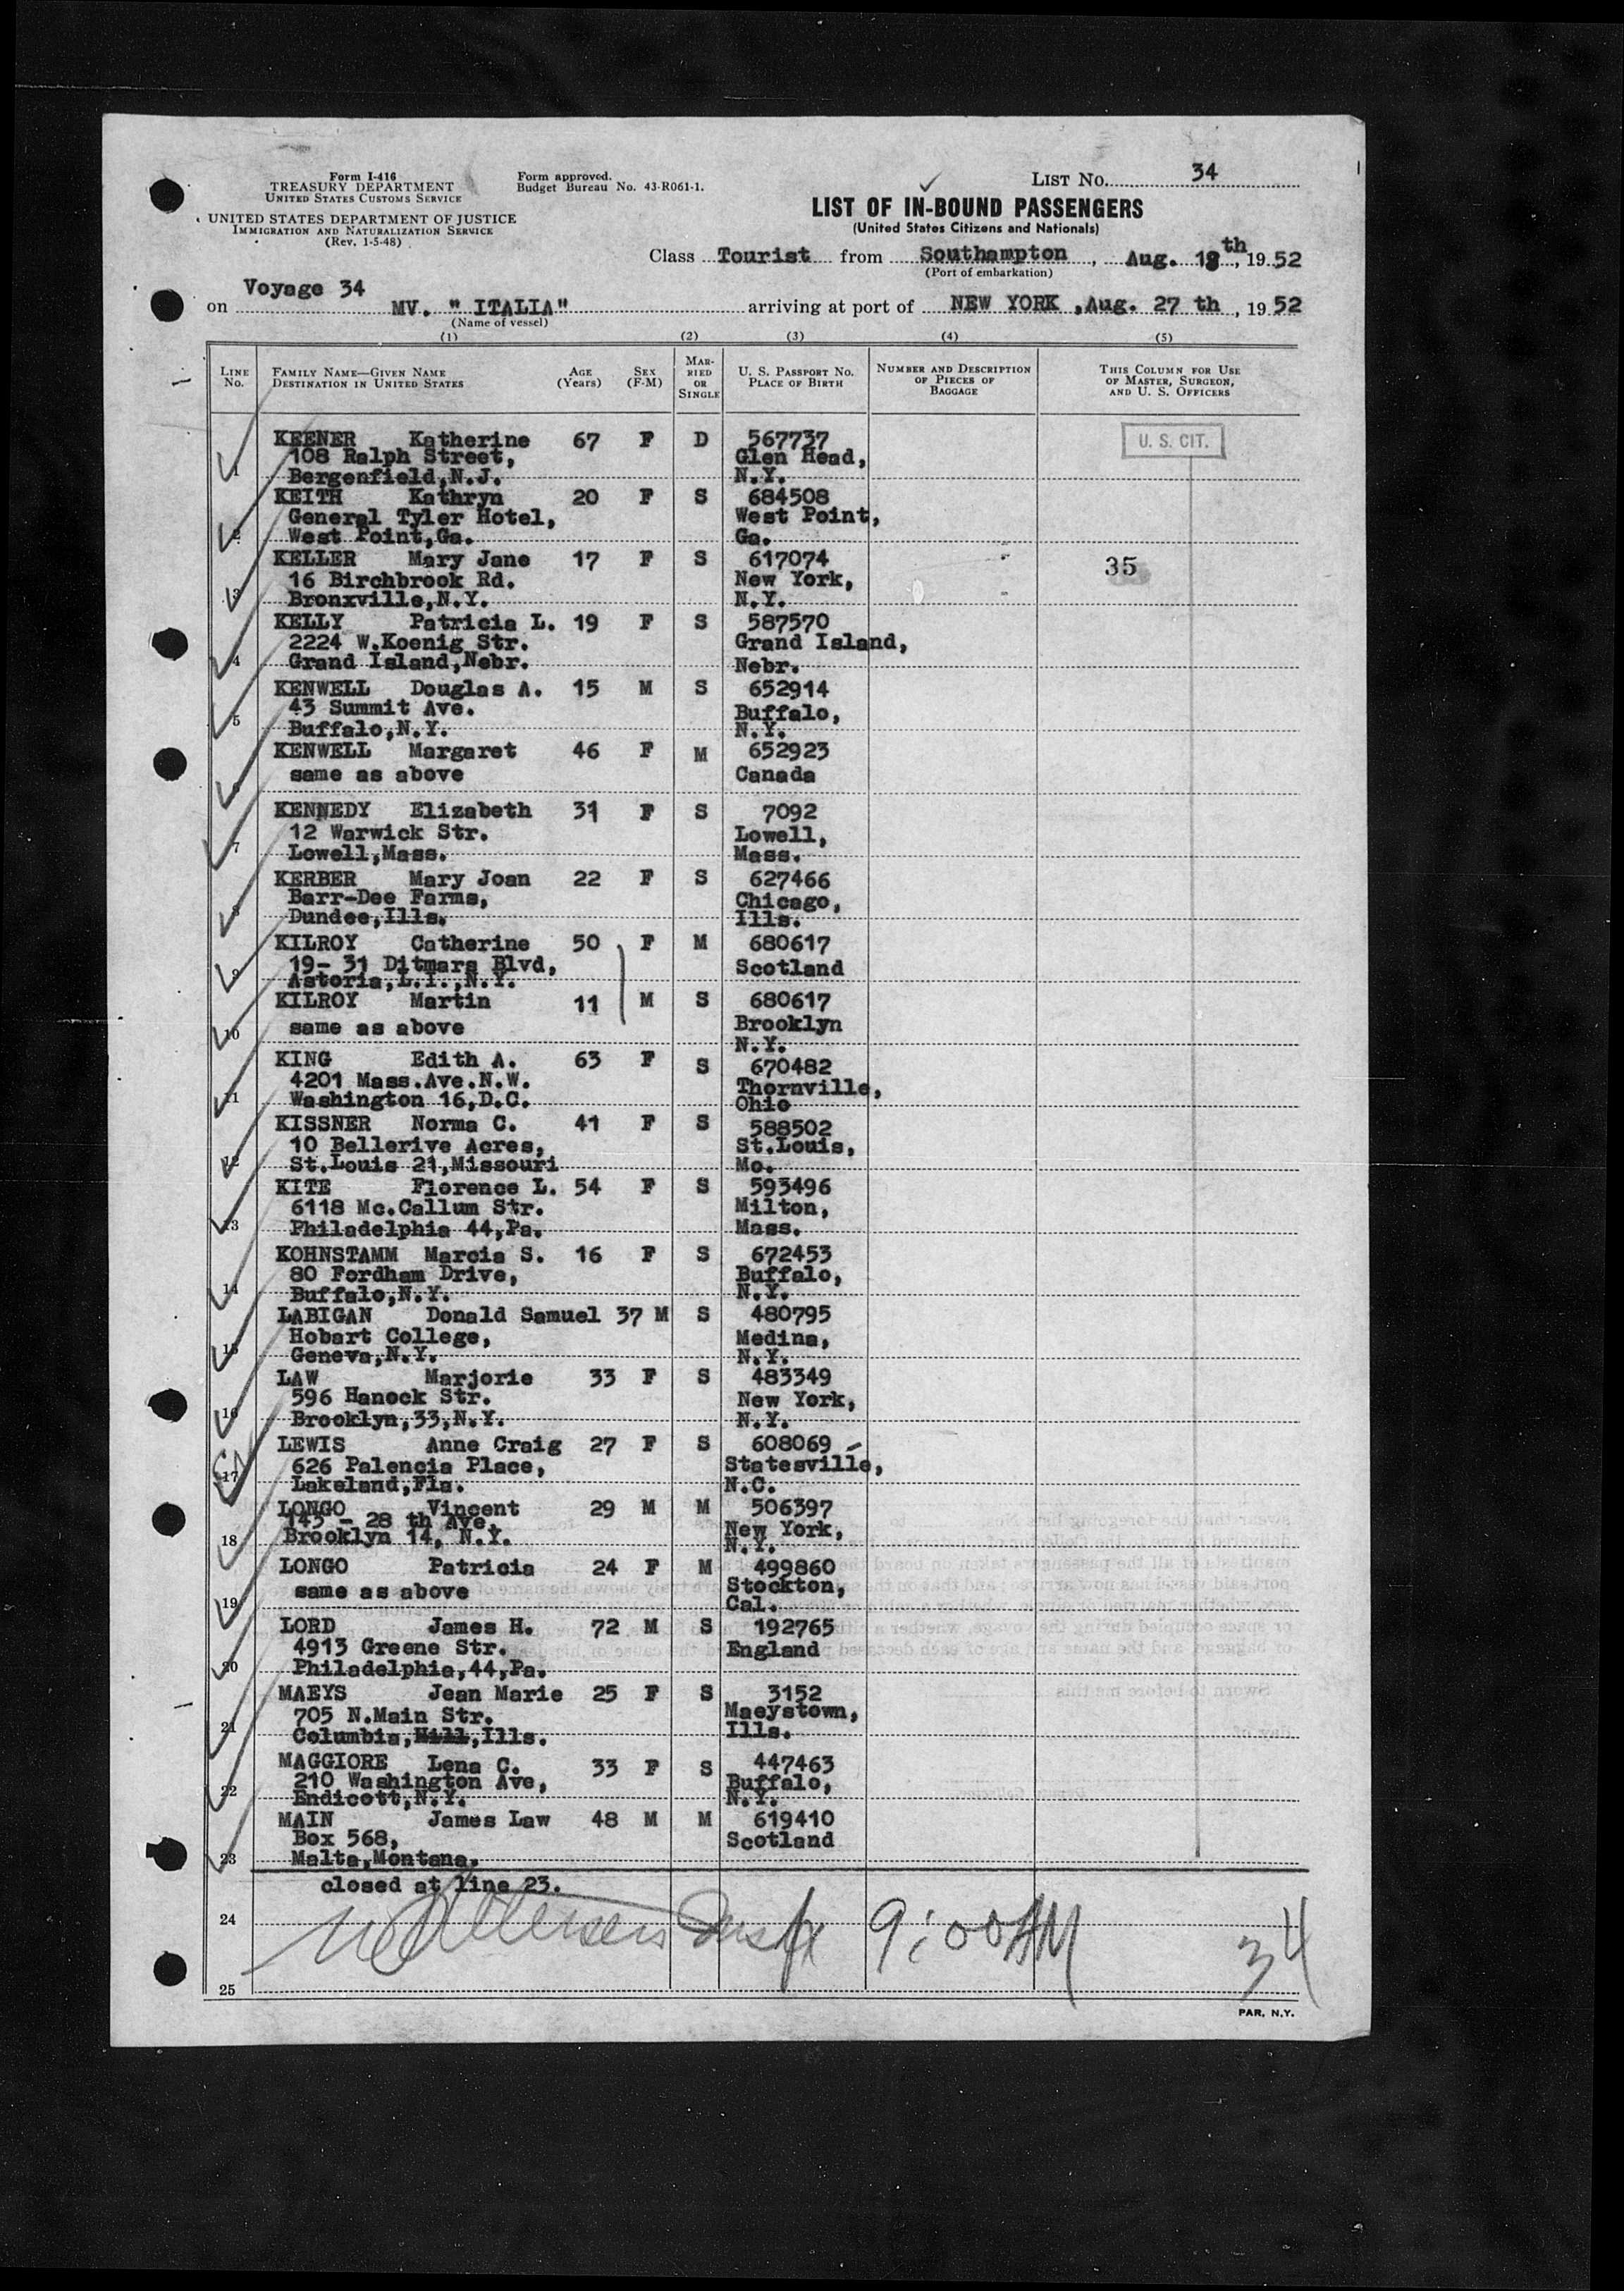 Form I-416
TREASURY DEPARTMENT
UNITED STATES CUSTOMS SERVICE
UNITED STATES DEPARTMENT OF JUSTICE
IMMIGRATION AND NATURALIZATION SERVICE
(Rev. 1-5-48)
Form approved.
Budget Bureau No. 43-R061-1.
LIST No. 34
LIST OF IN-BOUND PASSENGERS
(United States Citizens and Nationals)
Class Tourist from Southampton, Aug. 18th, 1952
(Port of embarkation)
Voyage 34
on MV. "ITALIA" arriving at port of NEW YORK, Aug. 27 th, 1952
(Name of vessel)
(1) (2) (3) (4) (5)
LINE No. FAMILY NAME—GIVEN NAME DESTINATION IN UNITED STATES AGE (Years) SEX (F-M) MARRIED OR SINGLE U. S. PASSPORT NO. PLACE OF BIRTH NUMBER AND DESCRIPTION OF PIECES OF BAGGAGE THIS COLUMN FOR USE OF MASTER, SURGEON, AND U. S. OFFICERS
KEENER Katherine 67 F D 567737 U. S. CIT.
108 Ralph Street, Glen Head,
1 Bergenfield,N.J. N.Y.
KEITH Kathryn 20 F S 684508
General Tyler Hotel, West Point,
2 West Point,Ga. Ga.
KELLER Mary Jane 17 F S 617074 35
16 Birchbrook Rd. New York,
3 Bronxville,N.Y. N.Y.
KELLY Patricia L. 19 F S 587570
2224 W.Koenig Str. Grand Island,
4 Grand Island,Nebr. Nebr.
KENWELL Douglas A. 15 M S 652914
43 Summit Ave. Buffalo,
5 Buffalo,N.Y. N.Y.
KENWELL Margaret 46 F M 652923
same as above Canada
6
KENNEDY Elizabeth 31 F S 7092
12 Warwick Str. Lowell,
7 Lowell,Mass. Mass.
KERBER Mary Joan 22 F S 627466
Barr-Dee Farms, Chicago,
8 Dundee,Ills. Ills.
KILROY Catherine 50 F M 680617
19- 31 Ditmars Blvd, Scotland
9 Astoria,L.I.,N.Y.
KILROY Martin 11 M S 680617
same as above Brooklyn
10 N.Y.
KING Edith A. 63 F S 670482
4201 Mass.Ave.N.W. Thornville,
11 Washington 16,D.C. Ohio
KISSNER Norma C. 41 F S 588502
10 Bellerive Acres, St.Louis,
12 St.Louis 21,Missouri Mo.
KITE Florence L. 54 F S 593496
6118 Mc.Callum Str. Milton,
13 Philadelphia 44,Pa. Mass.
KOHNSTAMM Marcia S. 16 F S 672453
80 Fordham Drive, Buffalo,
14 Buffalo,N.Y. N.Y.
LABIGAN Donald Samuel 37 M S 480795
Hobart College, Medina,
15 Geneva,N.Y. N.Y.
LAW Marjorie 33 F S 483349
596 Hancock Str. New York,
16 Brooklyn,33,N.Y. N.Y.
LEWIS Anne Craig 27 F S 608069
626 Palencia Place, Statesville,
17 Lakeland,Fla. N.C.
LONGO Vincent 29 M M 506397
143 - 28 th Ave, New York,
18 Brooklyn 14, N.Y. N.Y.
LONGO Patricia 24 F M 499860
same as above Stockton,
19 Cal.
LORD James H. 72 M S 192765
4913 Greene Str. England
20 Philadelphia,44,Pa.
MAEYS Jean Marie 25 F S 3152
705 N.Main Str. Maeystown,
21 Columbia,Hill,Ills. Ills.
MAGGIORE Lena C. 33 F S 447463
210 Washington Ave, Buffalo,
22 Endicott,N.Y. N.Y.
MAIN James Law 48 M M 619410
Box 568, Scotland
23 Malta,Montana.
closed at line 23.
24 9:00 AM 34
25
PAR, N.Y.